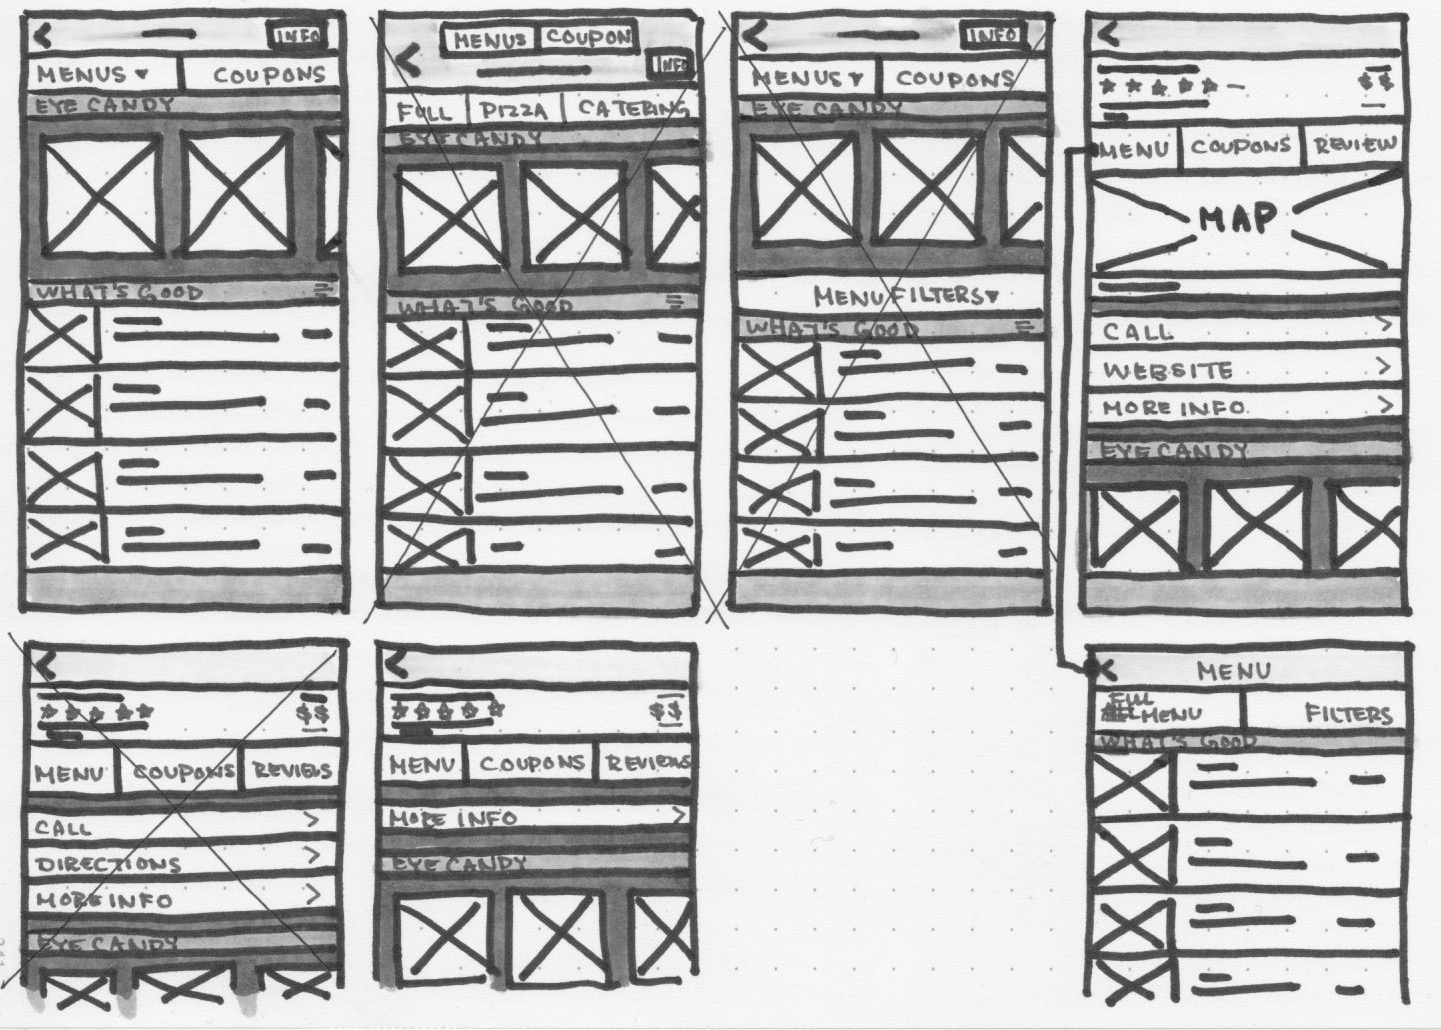 INFO
MENUS ▾ COUPONS
EYE CANDY
WHAT'S GOOD
MENUS COUPON
INFO
FULL PIZZA CATERING
EYE CANDY
WHAT'S GOOD
INFO
MENUS ▾ COUPONS
EYE CANDY
MENU FILTERS ▾
WHAT'S GOOD
$$
MENU COUPONS REVIEW
MAP
CALL >
WEBSITE >
MORE INFO >
EYE CANDY
$$
MENU COUPONS REVIEWS
CALL >
DIRECTIONS >
MORE INFO >
EYE CANDY
$$
MENU COUPONS REVIEWS
MORE INFO >
EYE CANDY
MENU
FULL
MENU FILTERS
WHAT'S GOOD